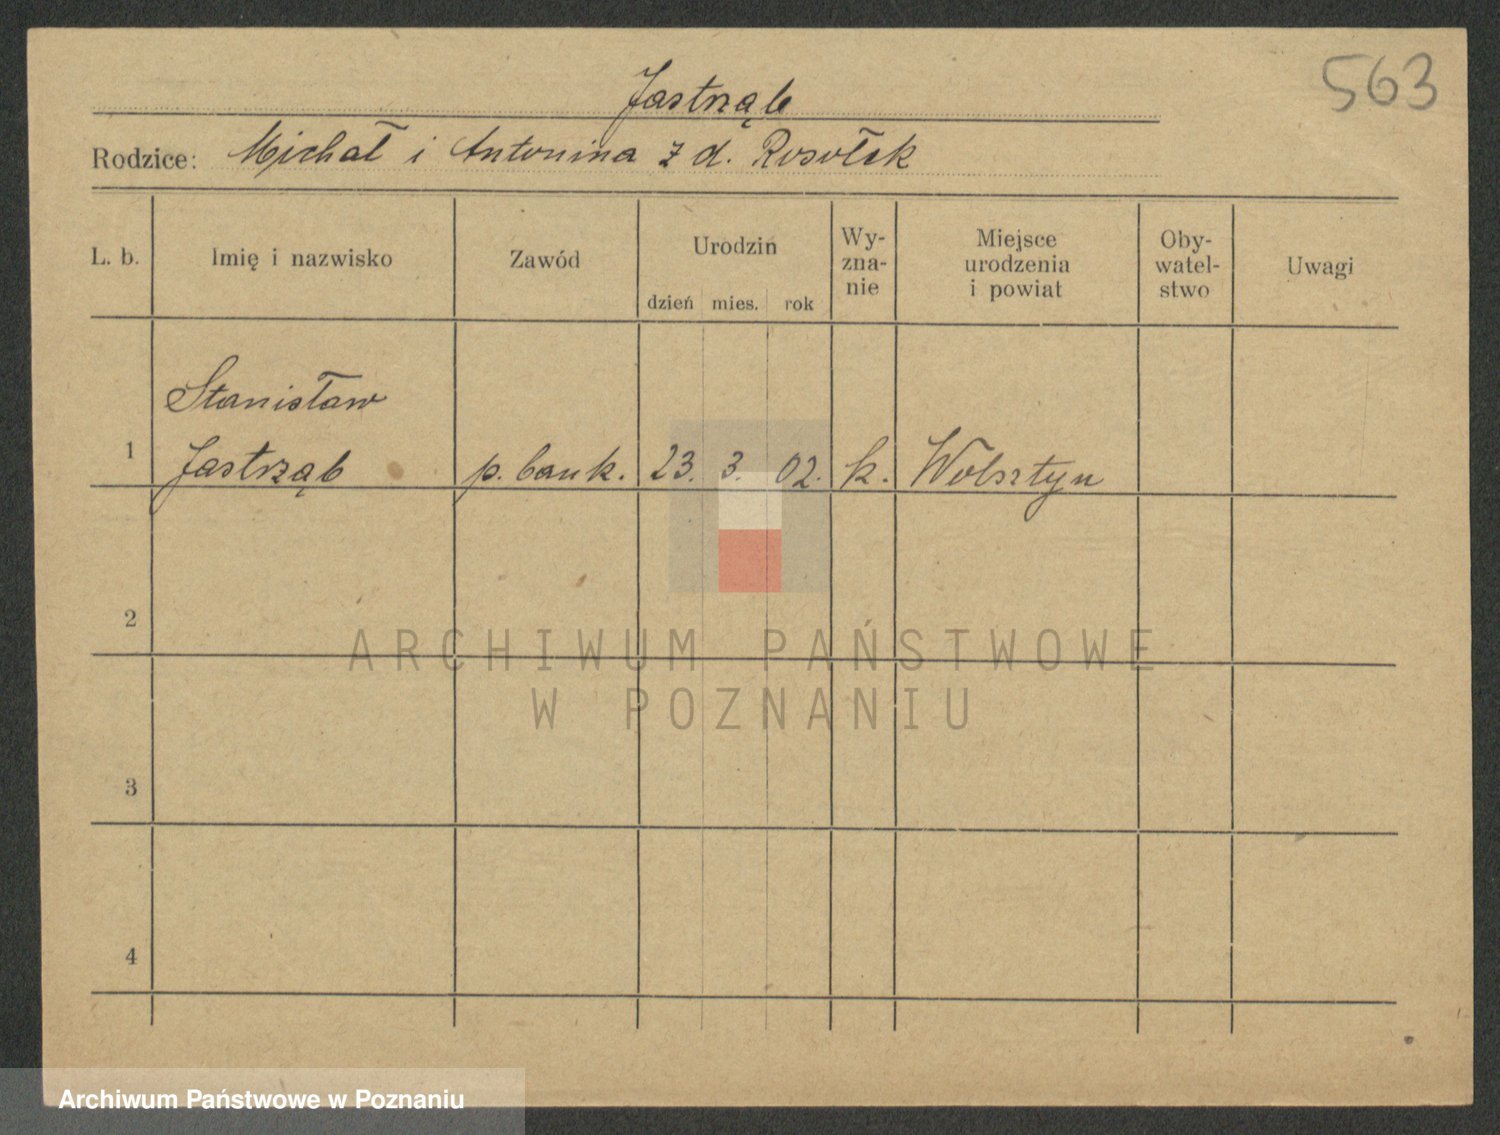 563
Jastrząb
Rodzice: Michał i Antonina z d. Rosołek
L. b.
Imię i nazwisko
Zawód
Urodzin
dzień mies. rok
Wy-
zna-
nie
Miejsce
urodzenia
i powiat
Oby-
watel-
stwo
Uwagi
Stanisław
1 Jastrząb p. bank. 23. 3. 02. k. Wolsztyn
2
ARCHIWUM PAŃSTWOWE
W POZNANIU
3
4
Archiwum Państwowe w Poznaniu